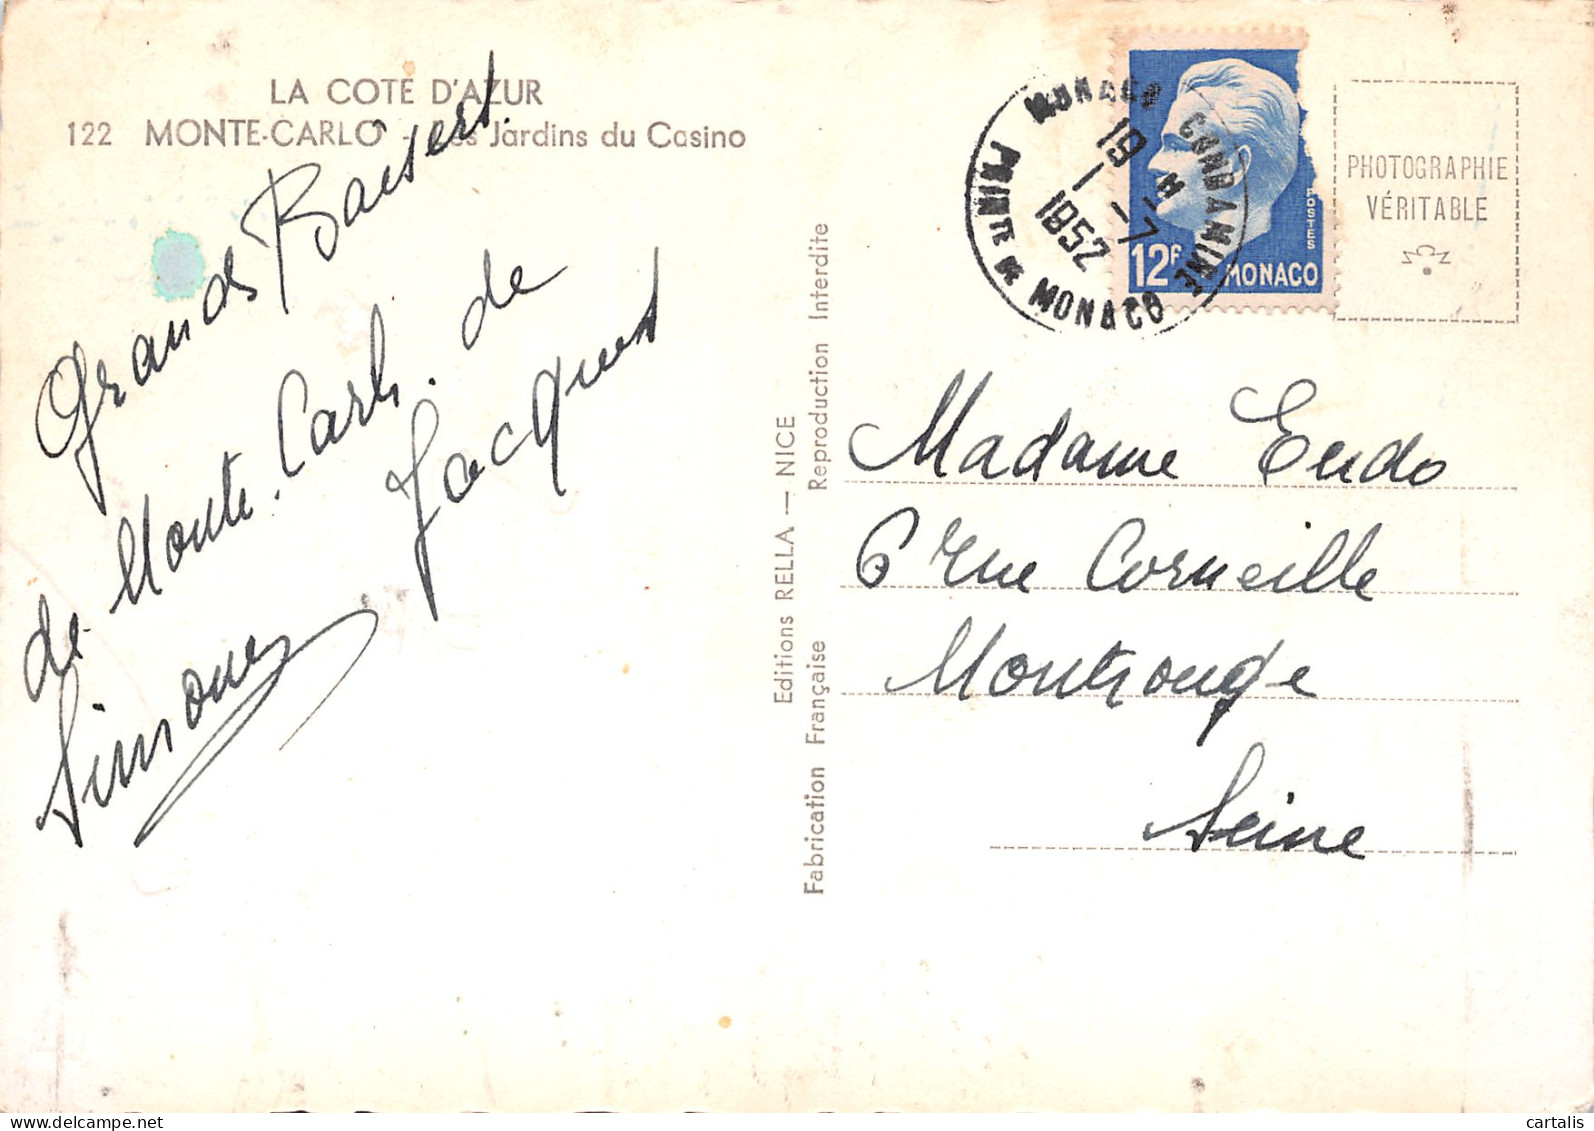 LA COTE D'AZUR
122 MONTE-CARLO - Les Jardins du Casino
Grands Baisers
de Monte-Carlo. de
Simone Jacques
Editions RELLA — NICE
Fabrication Française Reproduction Interdite
MONACO CONDAMINE
19 H
1-7
1952
PRINTE DE MONACO
12F
POSTES
MONACO
PHOTOGRAPHIE
VÉRITABLE
Madame Endo
6 rue Corneille
Montrouge
Seine
cartalis